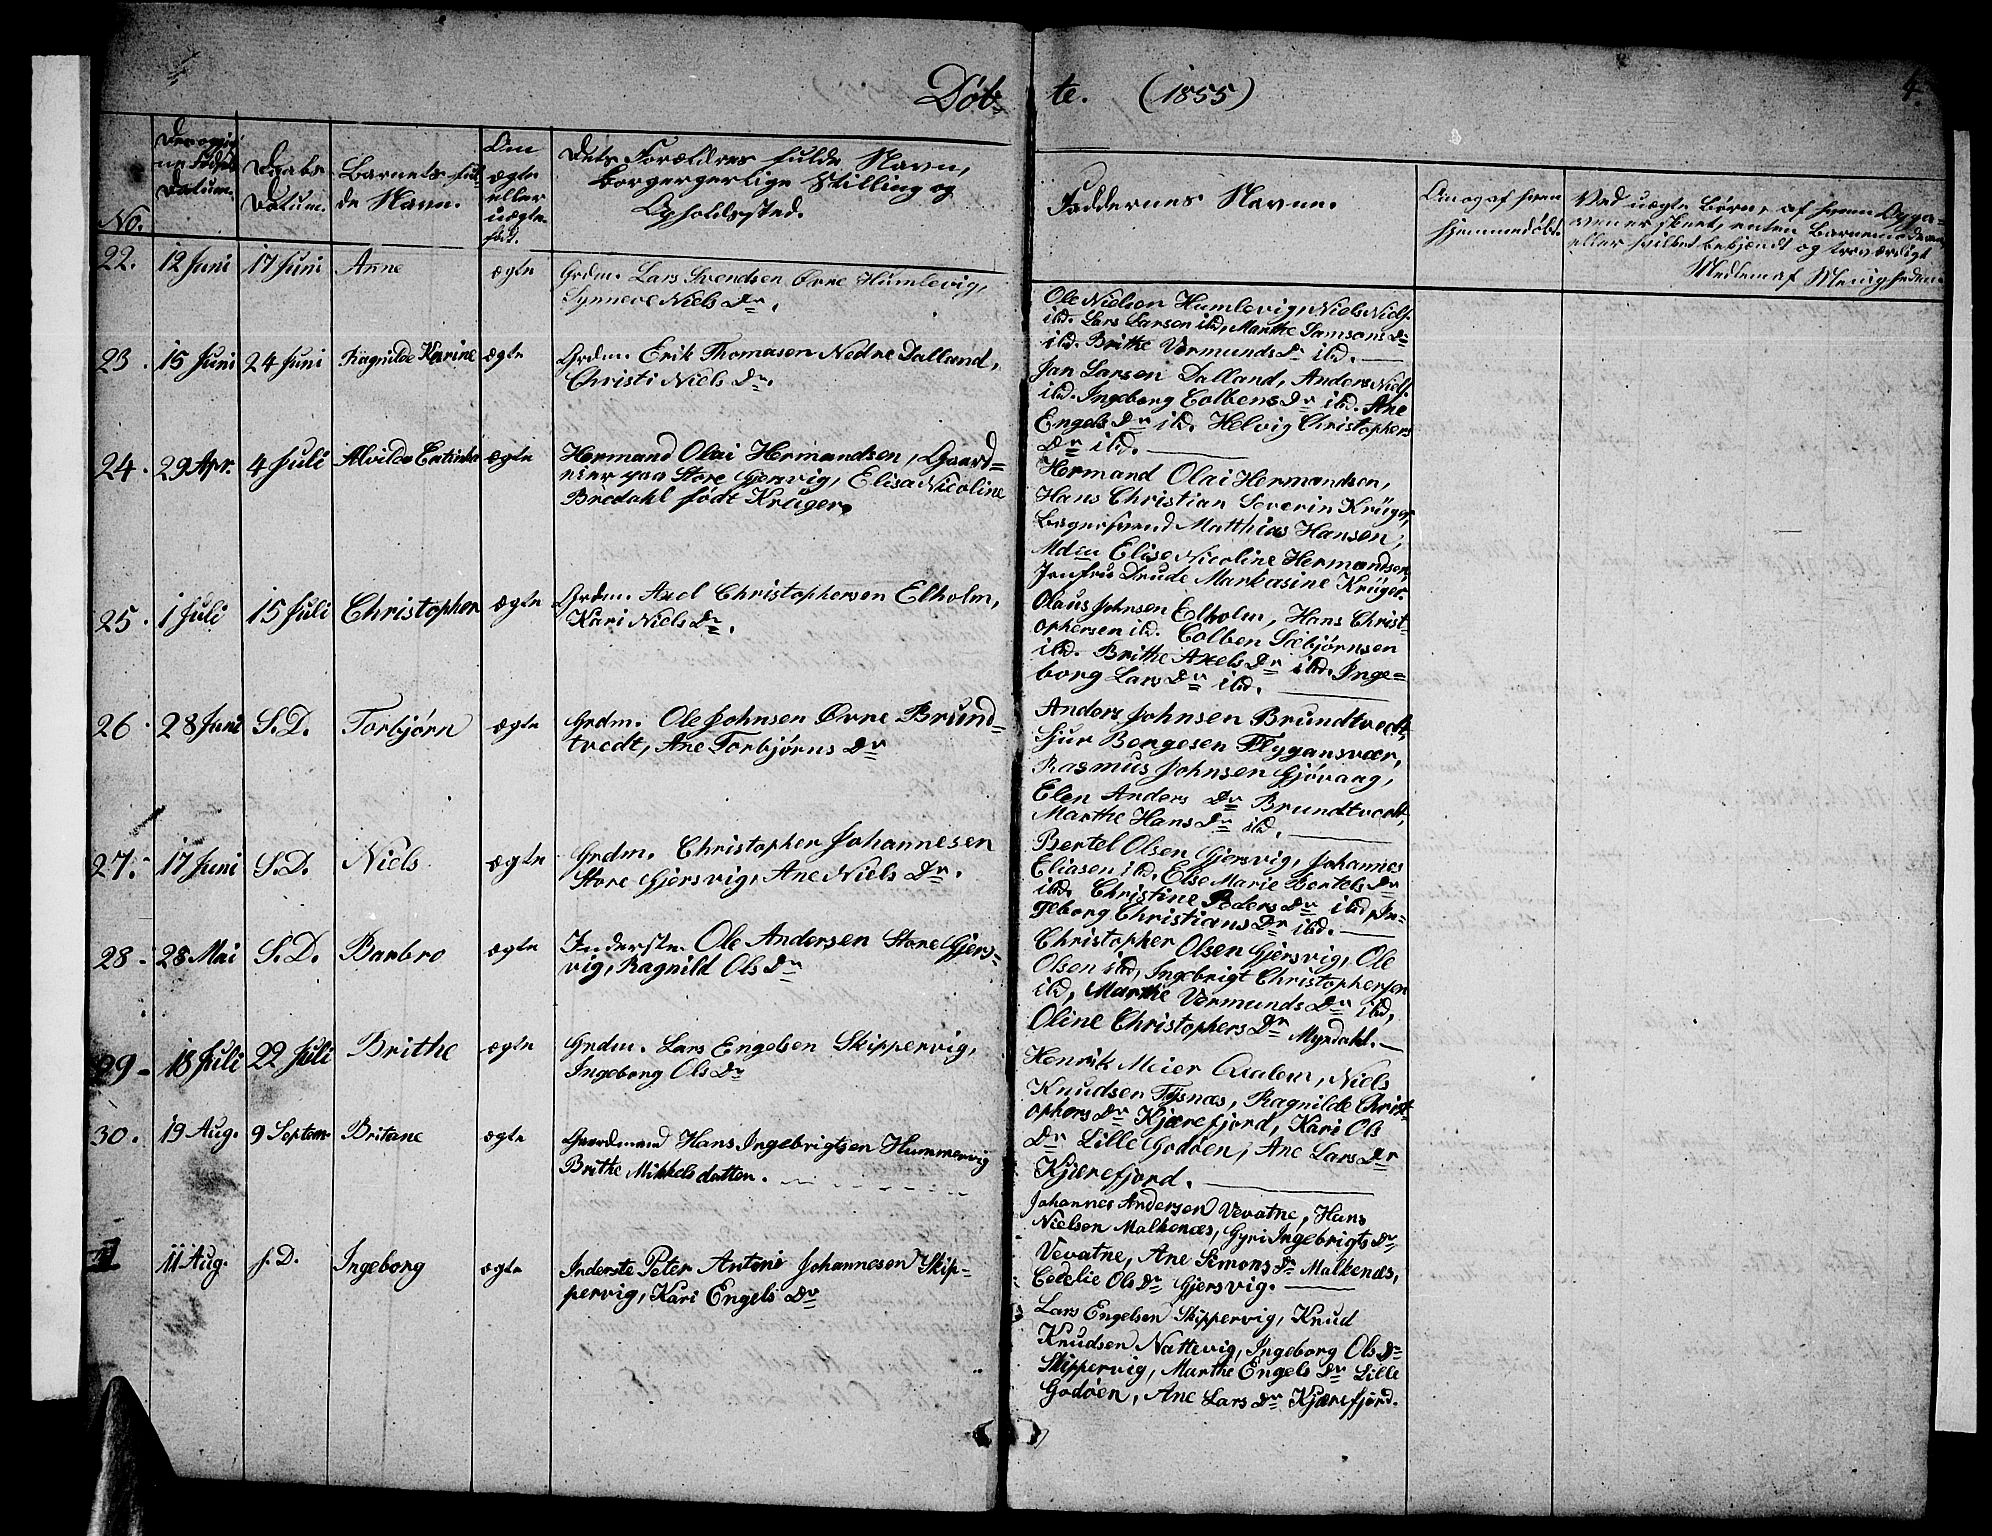 Døbte. (1855)
4.
No.
Den opgivne Fødsels Datum.
Daabs Datum.
Barnets fulde Navn.
Om ægte eller uægte fød.
Dets Forældres fulde Navn,
borgergerlige Stilling og
Opholdssted.
Faddernes Navne.
Om og af hvem
hjemmedøbt.
Ved uægte Børn, af hvem Opga=
ven er skeet, enten Barnemoderen,
eller hvilket bekjendt og troværdigt
Medlem af Menigheden.
22. 12 Juni 17 Juni Anne ægte Grdm. Lars Svendsen Øvre Humlevig,
Synneve Niels Dr.
Ole Nielsen Humlevig, Niels Niels.
ibd. Lars Larsen ibd, Marthe Samsons Dr
ibd. Brithe Vermunds Dr ibd.
23. 15 Juni 24 Juni Ragnilde Karine ægte Grdm. Erik Thomasen Nedre Dalland,
Christi Niels Dr.
Jan Larsen Dalland, Anders Niels.
ibd. Ingeborg Colbens Dr ibd. Ane
Engels Dr ibd. Helvig Christophers
Dr ibd.
24. 29 Apr. 4 Juli Alvilde Catinka ægte Hermand Olai Hermandsen, Gaard=
mand paa Store Gjersvig, Elisa Nicoline
Bredahl født Krüger.
Hermand Olai Hermandsen,
Hans Christian Severin Krüger,
Matthias Hansen,
Mdm Elise Nicoline Hermandsen,
Jomfru Drude Markasine Krüger.
25. 1 Juli 15 Juli Christopher ægte Grdm. Axel Christophersen Elholm,
Kari Niels Dr.
Olaus Johnsen Elholm, Hans Christ-
ophersen ibd. Colben Sæbjørnsen
ibd. Brithe Axels Dr ibd. Inge=
borg Lars Dr ibd.
26. 28 Juni S.D. Torbjørn ægte Grdm. Ole Johnsen Øvre Brund=
tvedt, Ane Torbjørns Dr
Anders Johnsen Brundtvedt,
Sjur Bengesen Flygansvær,
Rasmus Johnsen Gjøvaag,
Elen Anders Dr Brundtvedt,
Marthe Hans Dr ibd.
27. 17 Juni S.D. Niels ægte Grdm. Christopher Johannesen
Store Gjersvig, Ane Niels Dr.
Bertel Olsen Gjersvig, Johannes
Eliasen ibd. Else Marie Bertels Dr
ibd. Christine Peders Dr ibd, In-
geborg Christians Dr ibd.
28. 28 Mai S.D. Barbro ægte Inderste Ole Andersen Store Gjers=
vig, Ragnild Ols Dr
Christopher Olsen Gjersvig, Ole
Olsen ibd, Ingebrigt Christophersen
ibd, Marthe Vermunds Dr ibd,
Oline Christophers Dr Myrdahl.
29. 18 Juli 22 Juli Brithe ægte Grdm. Lars Engelsen Skippervig,
Ingeborg Ols Dr
Henrik Meier Qvalem, Niels
Knudsen Tysnæs, Ragnilde Christ-
ophers Dr Kjærefjord, Kari Ols
Dr Lille Godøen, Ane Lars Dr
Kjærefjord.
30. 19 Aug. 9 Septem Britane ægte Gaardmand Hans Ingebrigtsen Hummervig
Brithe Mikkels datter.
Johannes Andersen Vevatne, Hans
Nielsen Malkenæs, Gyri Ingebrigts Dr
Vevatne, Ane Simons Dr Malkenæs,
Cecelie Ols Dr Gjersvig.
11 Aug. S.D. Ingeborg ægte Inderste Peter Antoni Johannesen Skip-
pervig, Kari Engels Dr
Lars Engelsen Skippervig, Knud
Knudsen Nattevig, Ingeborg Ols Dr
Skippervig, Marthe Engels Dr Lille
Godøen, Ane Lars Dr Kjærefjord.